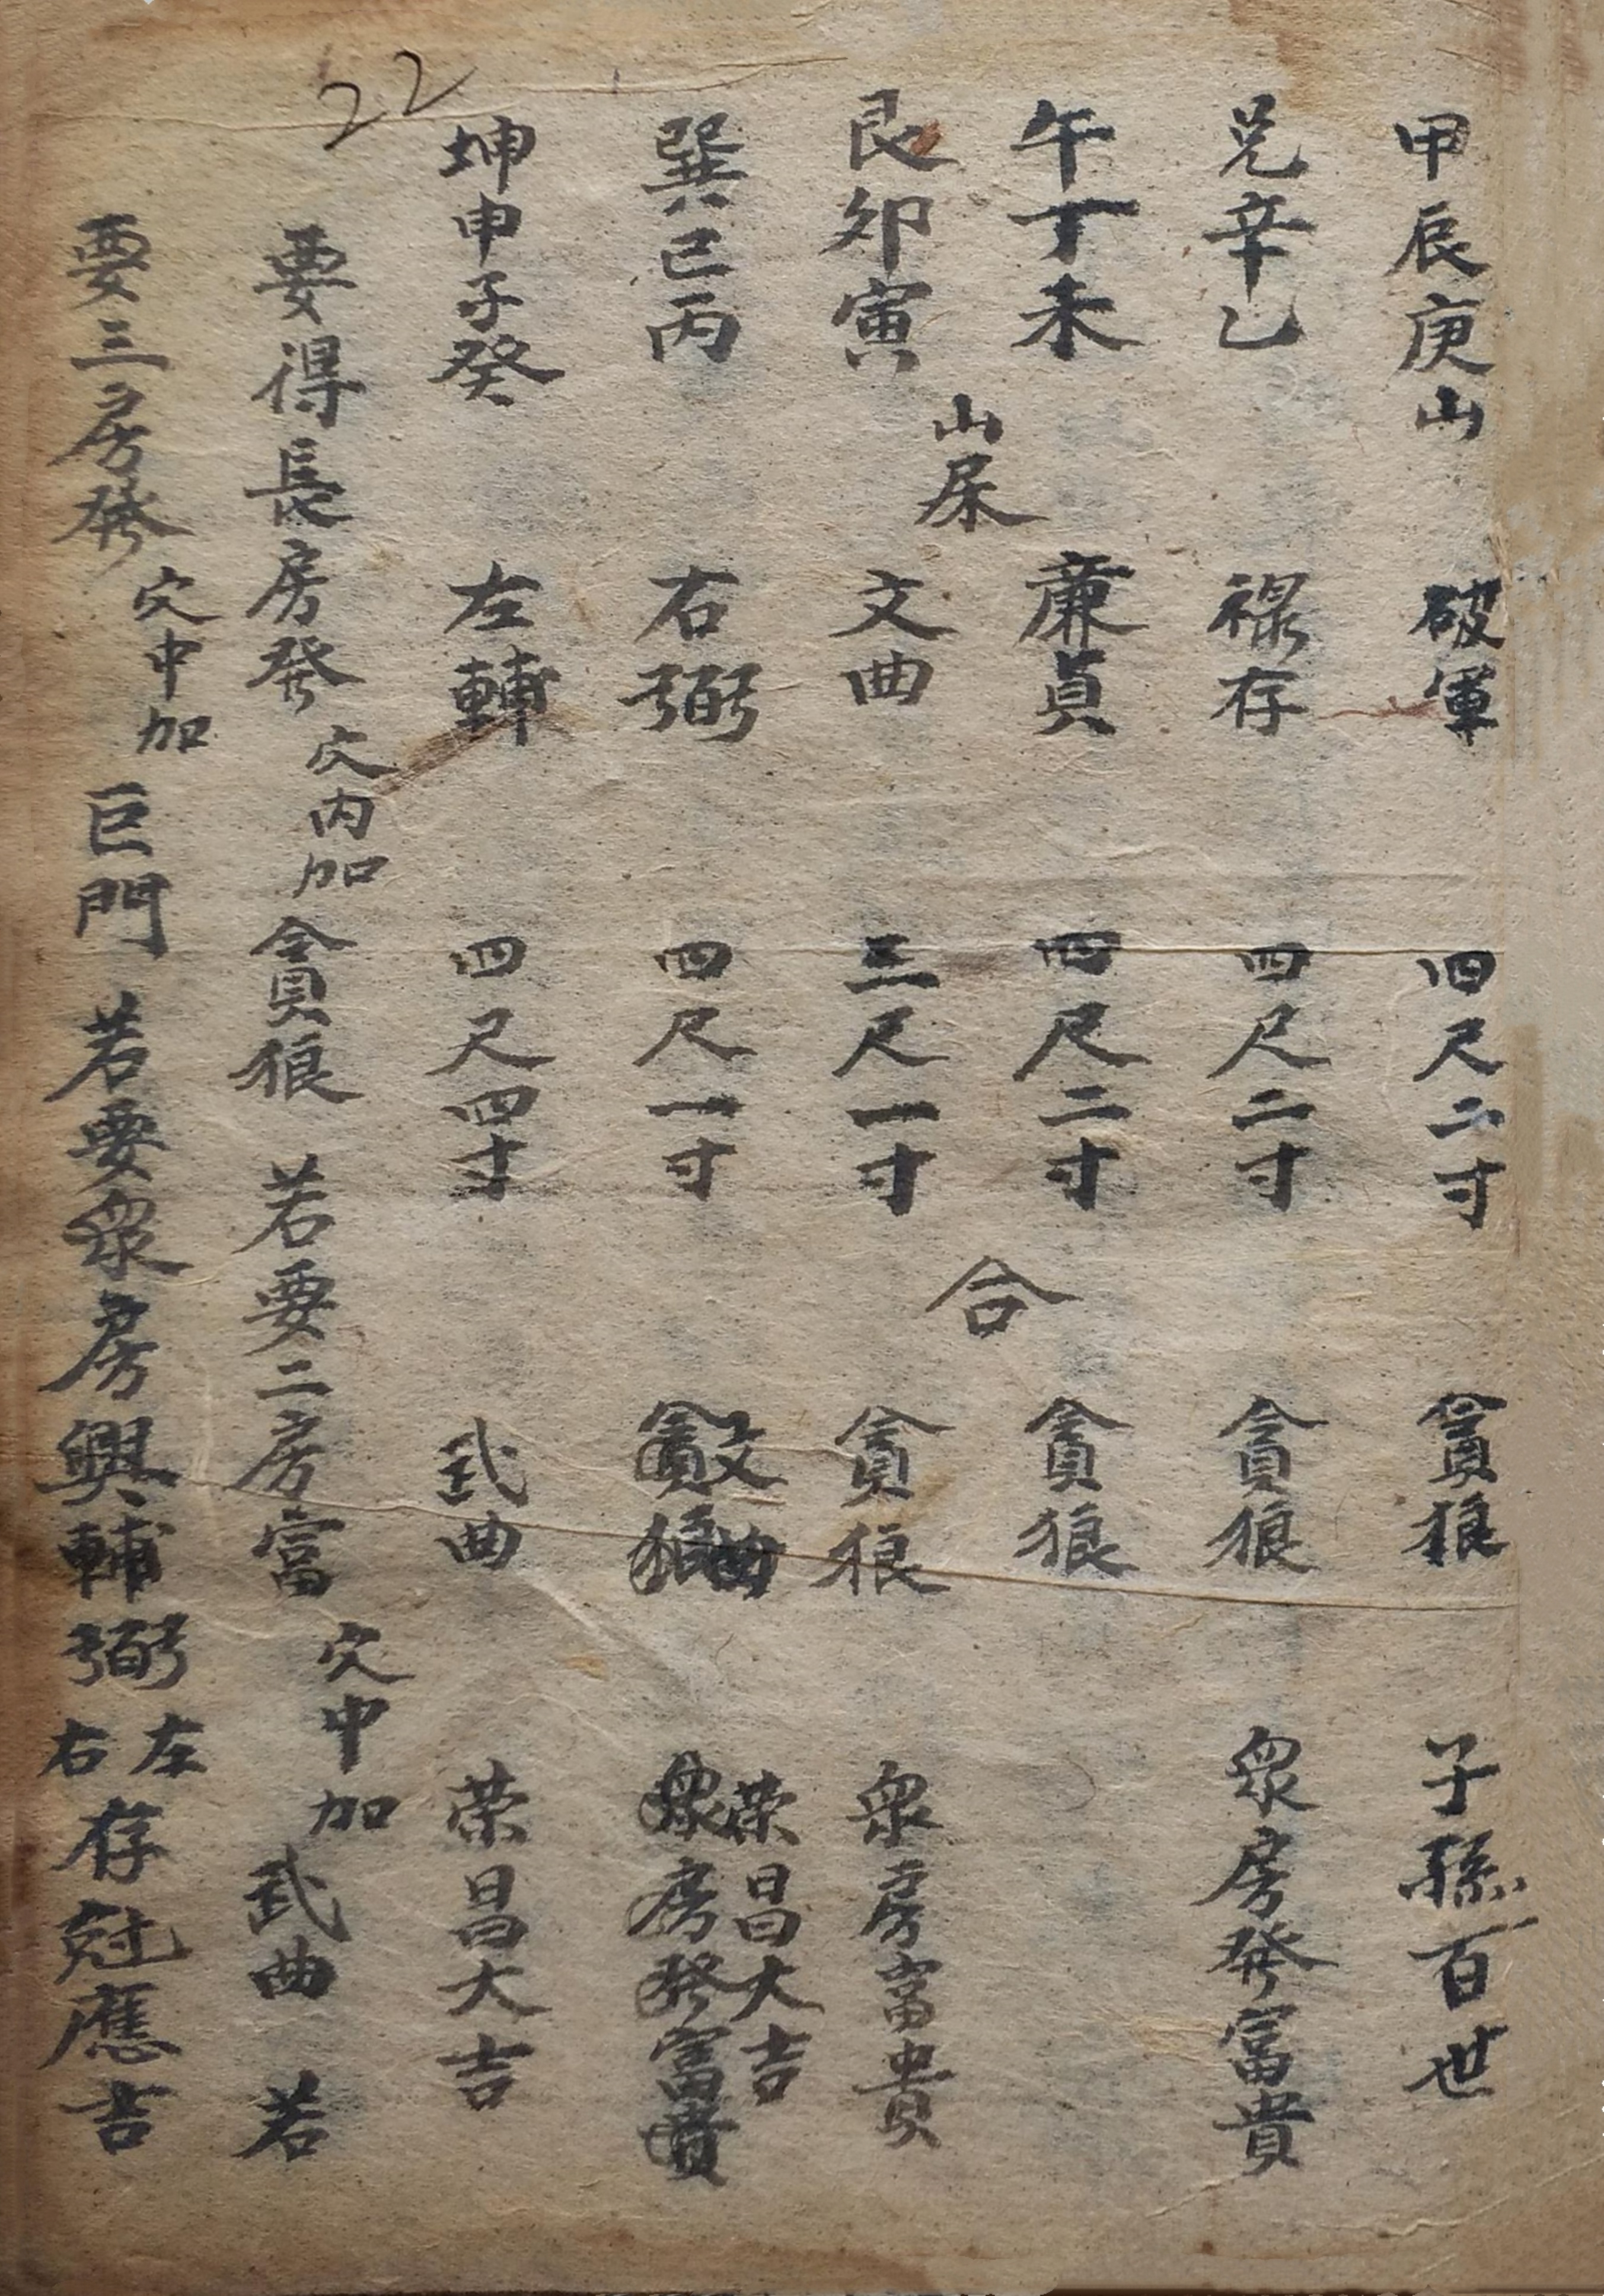 22
甲辰庚山 破軍 四尺二寸 貪狼 子孫百世
兑辛乙 祿存 四尺二寸 貪狼 眾房發富貴
午丁未 廉貞 四尺二寸 貪狼
山尿 合
艮卯寅 文曲 三尺一寸 貪狼 眾房富貴
文曲 荣昌大吉
巽巳丙 右弼 四尺一寸 貪狼 眾房發富貴
坤申子癸 左轉 四尺四寸 武曲 荣昌大吉
要得長房發 穴内加 貪狼 若要二房富 穴中加 武曲 若
要三房發 穴中加 巨門 若要眾房興輔弼左右存冠應吉